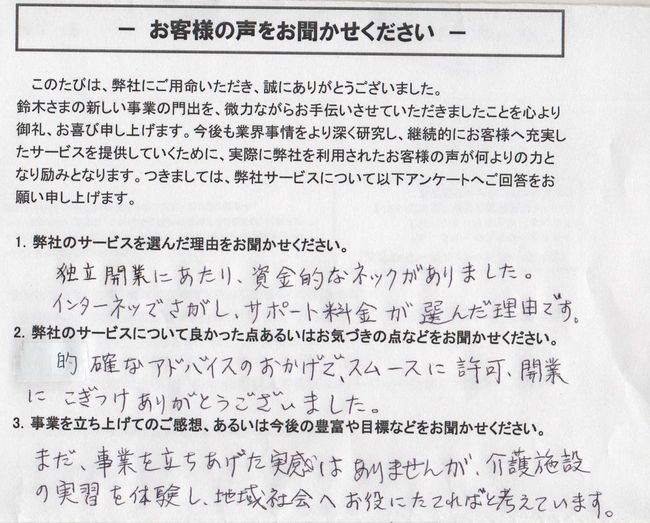 － お客様の声をお聞かせください －
このたびは、弊社にご用命いただき、誠にありがとうございました。
鈴木さまの新しい事業の門出を、微力ながらお手伝いさせていただきましたことを心より
御礼、お喜び申し上げます。今後も業界事情をより深く研究し、継続的にお客様へ充実し
たサービスを提供していくために、実際に弊社を利用されたお客様の声が何よりの力と
なり励みとなります。つきましては、弊社サービスについて以下アンケートへご回答をお
願い申し上げます。
1. 弊社のサービスを選んだ理由をお聞かせください。
独立開業にあたり、資金的なネックがありました。
インターネッでさがし、サポート料金が選んだ理由です。
2. 弊社のサービスについて良かった点あるいはお気づきの点などをお聞かせください。
的確なアドバイスのおかげでスムースに許可、開業
にこぎつけありがとうございました。
3. 事業を立ち上げてのご感想、あるいは今後の豊富や目標などをお聞かせください。
まだ、事業を立ちあげた実感はありませんが、介護施設
の実習を体験し、地域社会へお役にたてればと考えています。